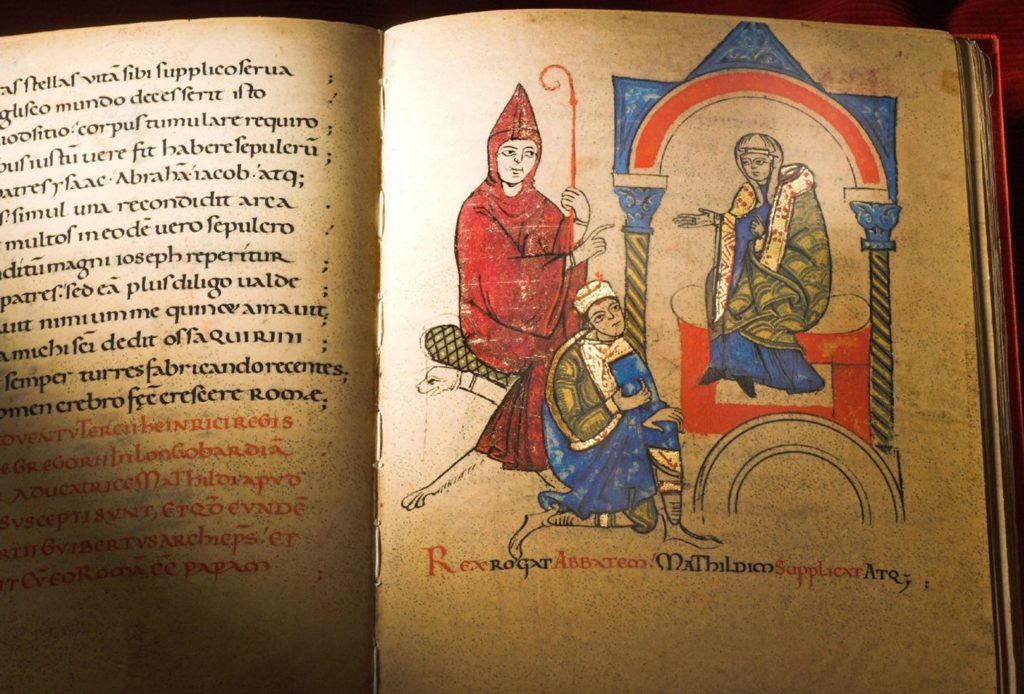 stellas vitā sibi supplico serua ;
mundo decesserit isto
corpus tumulare requiro ;
iustū uere fit habere sepulcrū ;
patres ysaac. Abrahā iacob. atq;
simul una recondidit arca
multos in eodē uero sepulcro
magni ioseph reperitur ;
patres. sed eā plus diligo ualde
nimium me quinque amauit ;
michi sci dedit ossa QUIRINI ;
semper turres fabricando recentes ;
crebro fcē crescere Romæ ;
TERCII HEINRICI REGIS
GREGORII IN LONGOBARDIĀ
MATHILDI APVD
SVSCEPTI SVNT, ETQD EVNDĒ
GVIBERTVS ARCHIEPS. ET
CV EO ROMA. CC PAPAM ;
REX ROGAT ABBATEM. MATHILDIM SUPPLICAT ATQ; ;